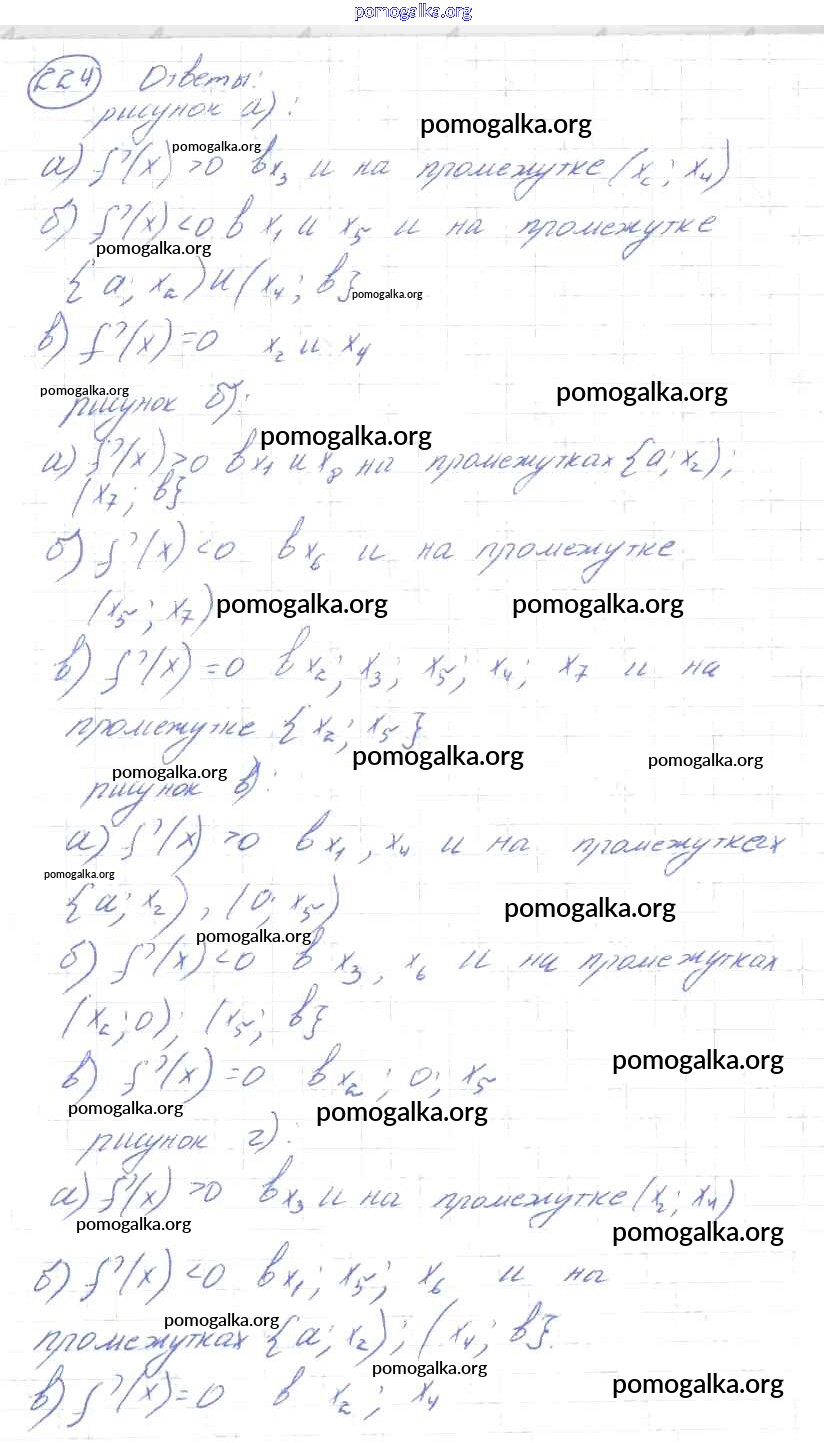 pomogalka.org
224 Ответы:
рисунок а):
pomogalka.org
pomogalka.org
а) f'(x) >0 в x₃ и на промежутке (x₂; x₄)
б) f'(x) <0 в x₁ и x₅ и на промежутке
pomogalka.org
{a; x₂) и (x₄; в}
pomogalka.org
в) f'(x) =0 x₂ и x₄
pomogalka.org
рисунок б):
pomogalka.org
pomogalka.org
а) f'(x) >0 в x₁ и x₈ на промежутках {a; x₂);
(x₇; в}
б) f'(x) <0 в x₆ и на промежутке
(x₅; x₇)
pomogalka.org pomogalka.org
в) f'(x) =0 в x₂; x₃; x₅; x₄; x₇ и на
промежутке {x₂; x₅}
pomogalka.org
pomogalka.org pomogalka.org
рисунок в):
а) f'(x) >0 в x₁, x₄ и на промежутках
pomogalka.org
{a; x₂), (0; x₅)
pomogalka.org
pomogalka.org
б) f'(x) <0 в x₃, x₆ и на промежутках
(x₂; 0); (x₅; в}
pomogalka.org
в) f'(x) =0 в x₂; 0; x₅
pomogalka.org pomogalka.org
рисунок г):
а) f'(x) >0 в x₃ и на промежутке (x₂; x₄)
pomogalka.org pomogalka.org
б) f'(x) <0 в x₁; x₅; x₆ и на
pomogalka.org
промежутках {a; x₂); (x₄; в}.
pomogalka.org pomogalka.org
в) f'(x) =0 в x₂; x₄